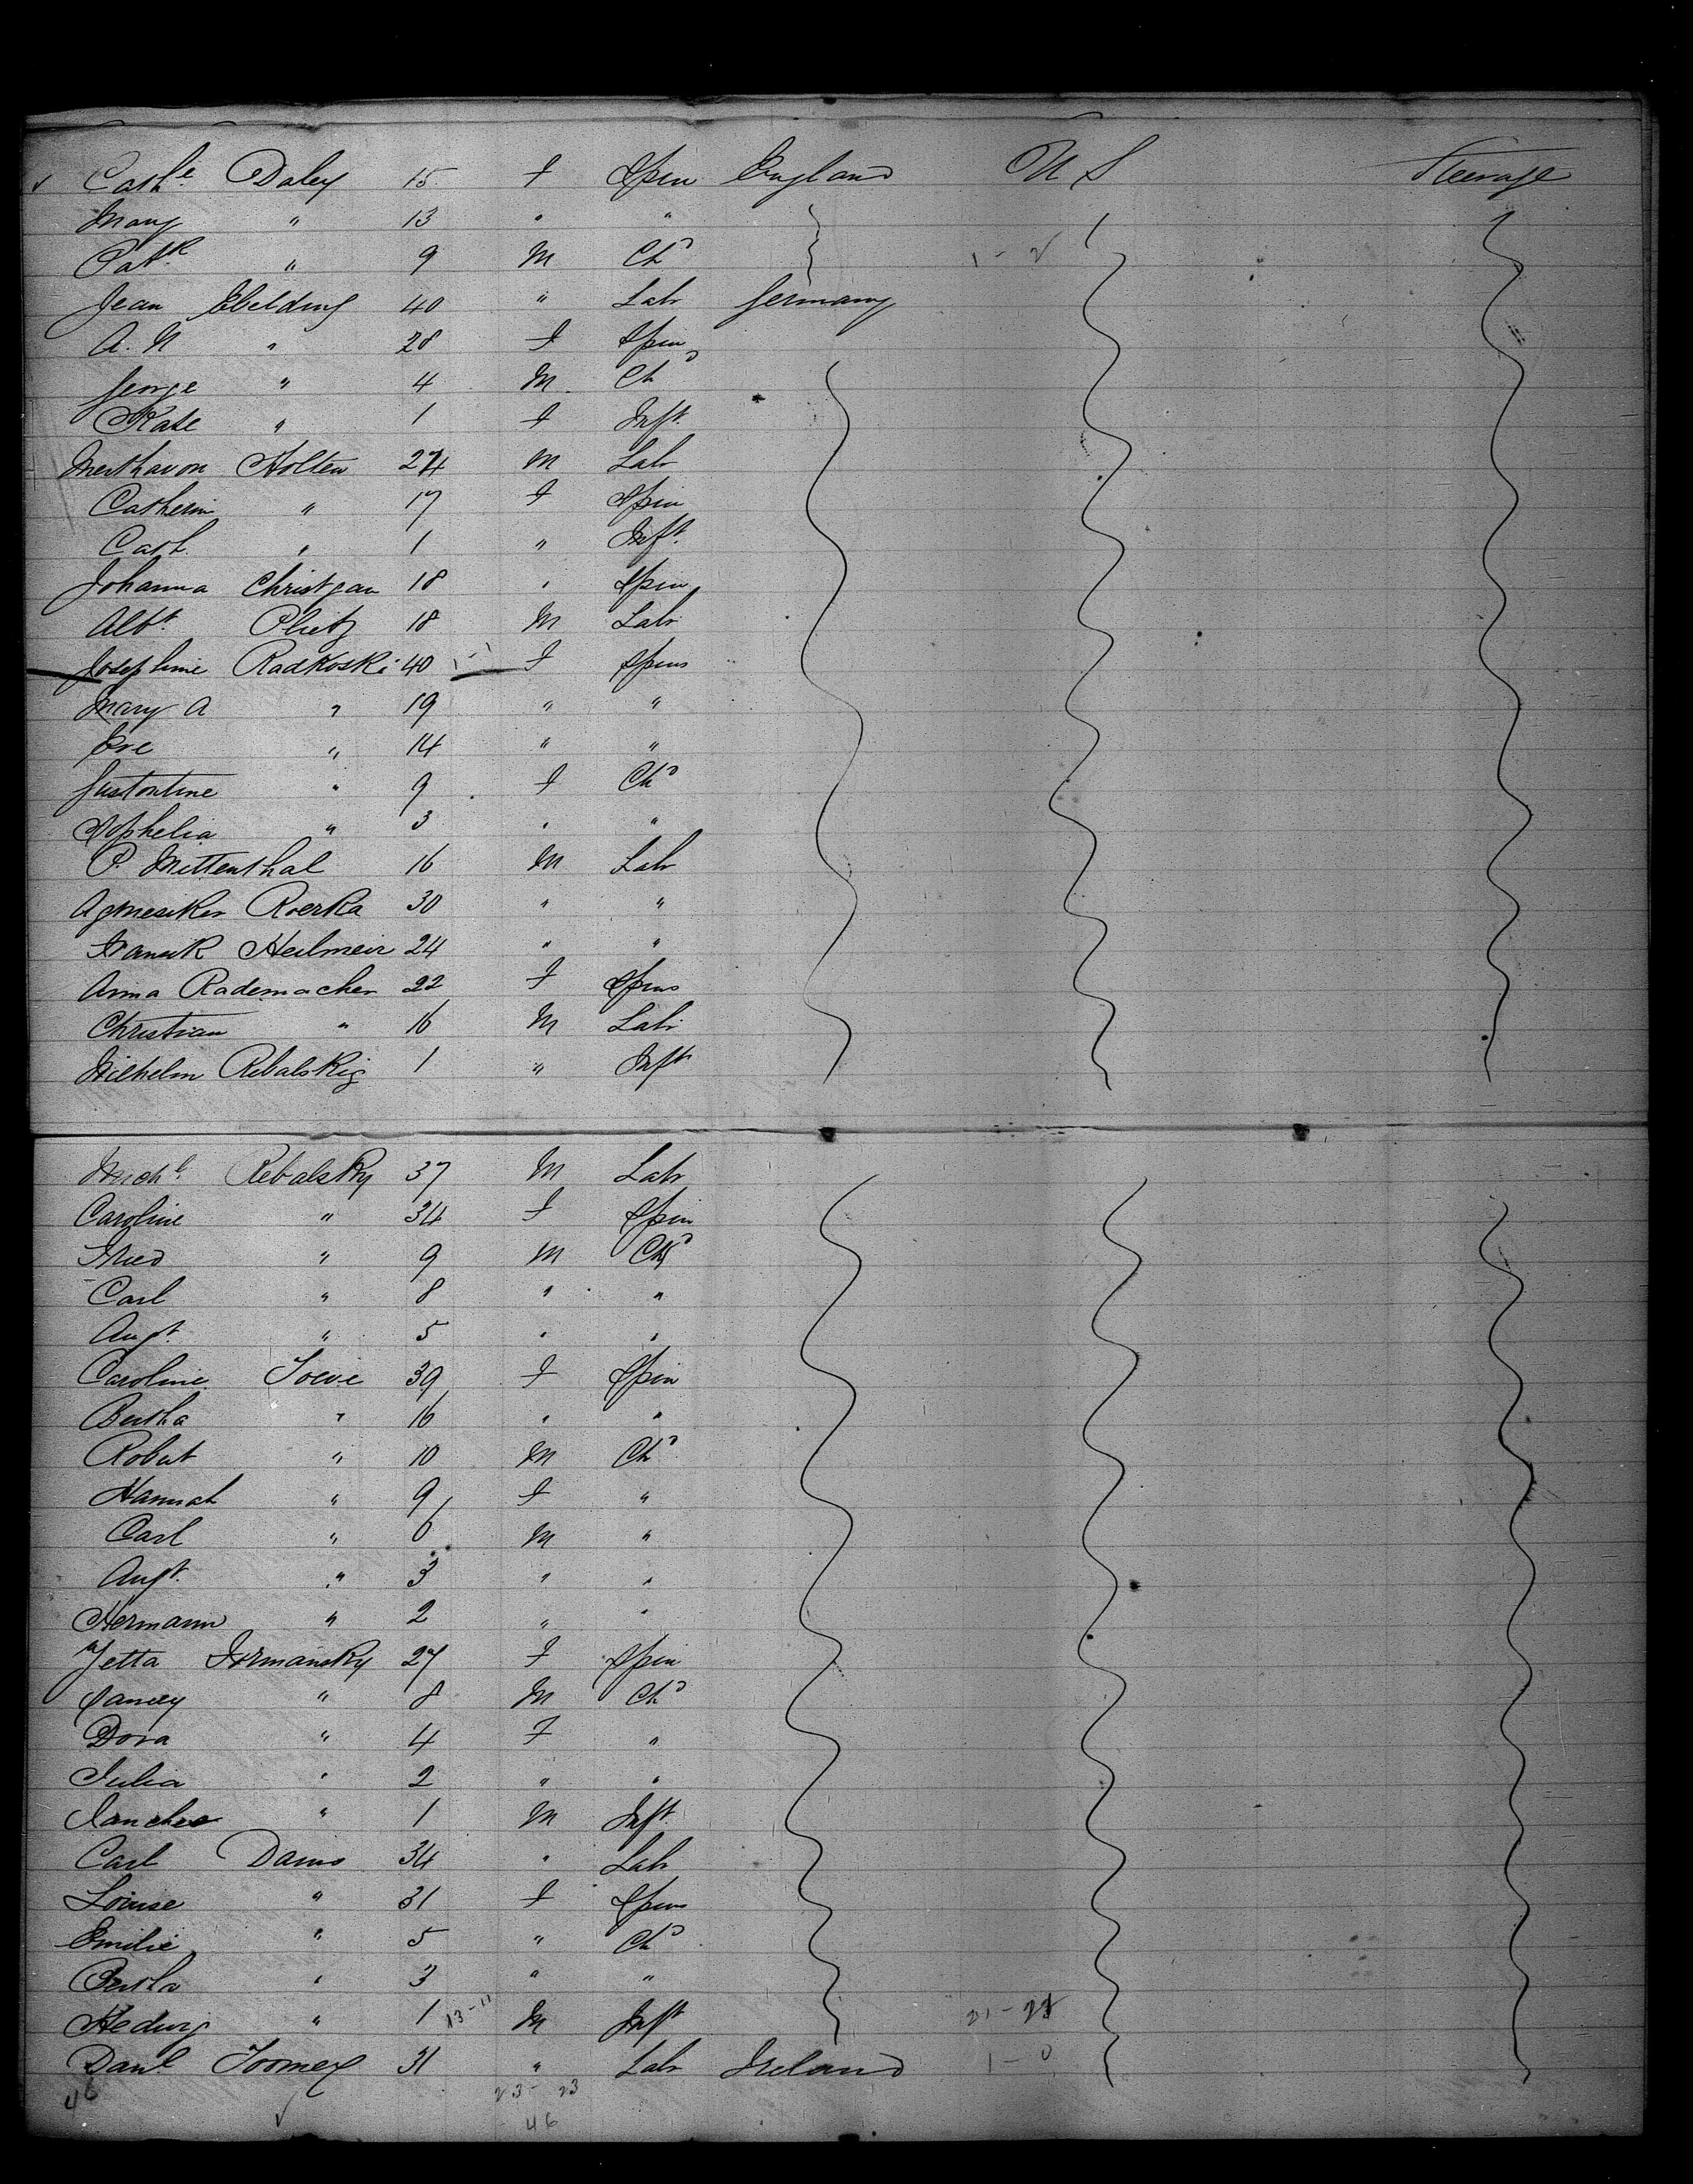 ✓ Cathe Daley 15 F Spin England U S Steerage
Mary " 13 " "
Patk " 9 M Chd 1 - 2
Jean Ebelding 40 " Labr Germany
A. N " 28 F Spin
George " 4 M Chd
Kate " 1 F Inft
Holten 24 M Labr
Catherin " 17 F Spin
Cath " 1 " Inft
Johanna Christgau 18 " Spin
Albt Plietz 18 M Labr
Josephine Radkoski 40 1-1 F Spin
Mary A " 19 " "
Eve " 14 " "
9 F Chd
Sophelia " 3 " "
P. Mittenthal 16 M Labr
Roerka 30 " "
Heilmeir 24 " "
Anna Rademacher 22 F Spin
Christian " 16 M Labr
Wilhelm Rebalskig 1 " Inft
Michl Rebalsky 37 M Labr
Caroline " 34 F Spin
Fried " 9 M Chd
Carl " 8 " "
Augt " 5 " "
Caroline 39 F Spin
Bertha " 16 " "
Robert " 10 M Chd
Hannah " 9 F "
Carl " 6 M "
Augt " 3 " "
Hermann " 2 " "
Jetta Irmansky 27 F Spin
" 8 M Chd
Dora " 4 F "
Julia " 2 " "
" 1 M Inft
Carl Dams 34 " Labr
Louise " 31 F Spin
Emilie " 5 " Chd
Bertha " 3 " "
Hedwig " 1 13-11 M Inft 21 - 21
Danl Toomey 31 " Labr Ireland 1 - 0
46 ✓ 23 - 23
46